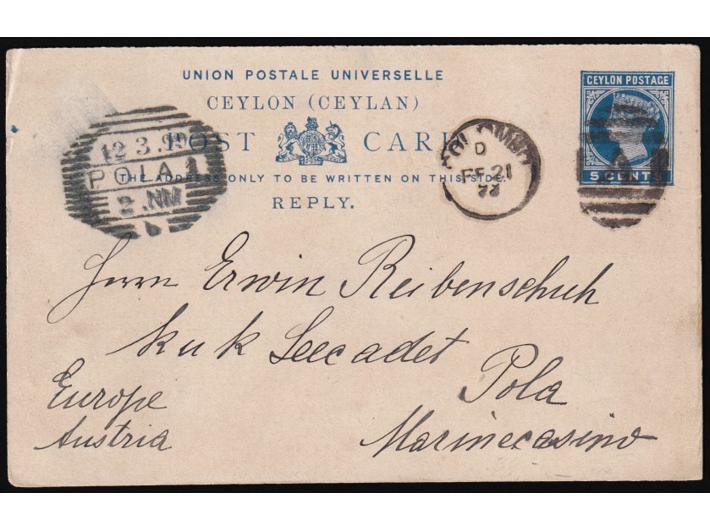 UNION POSTALE UNIVERSELLE
CEYLON (CEYLAN)
POST CARD
THE ADDRESS ONLY TO BE WRITTEN ON THIS SIDE.
REPLY.
CEYLON POSTAGE
5 CENTS
12 3.99
POLA 1
2.NM
COLOMBO
D
FE 21
Herrn Erwin Reibenschuh
k u k Seecadet
Pola
Marinecasino
Europe
Austria